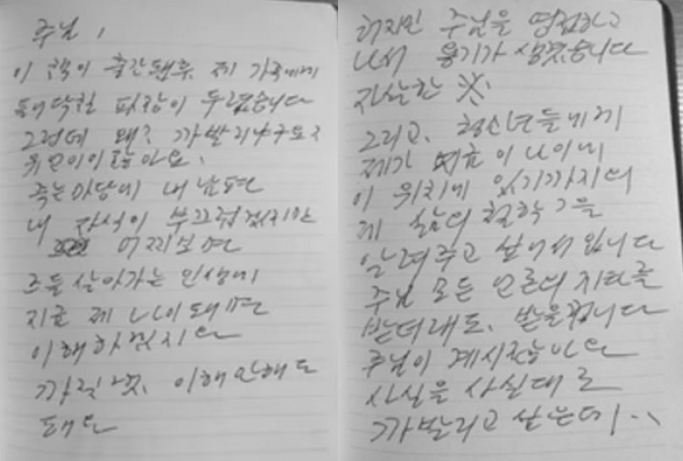 주님,
이 책이 출간됐후, 제 가족에게
돼 닥칠 파장이 두렵습니다
그런데 왠? 까발리
죽는 마당에 내 남편
내 자식이 부끄럽겠지만
어찌보면
그들 살아가는 인생에
지금 제 나이 돼면
이해하겠지요
까짓껏, 이해 안해도
돼요
하지만 주님을 영접하고
나서 용기가 생겼습니다
자살한
그리고, 청소년들에게
제가 이 나이에
이 위치에 있기까지의
제 삶의 철학 그를
알려주고 싶어서 입니다
주님 모든 언론의 지타를
받더래도, 받을껍니다
주님이 계시잖아요
사실을 사실대로
까발리고 싶은데...